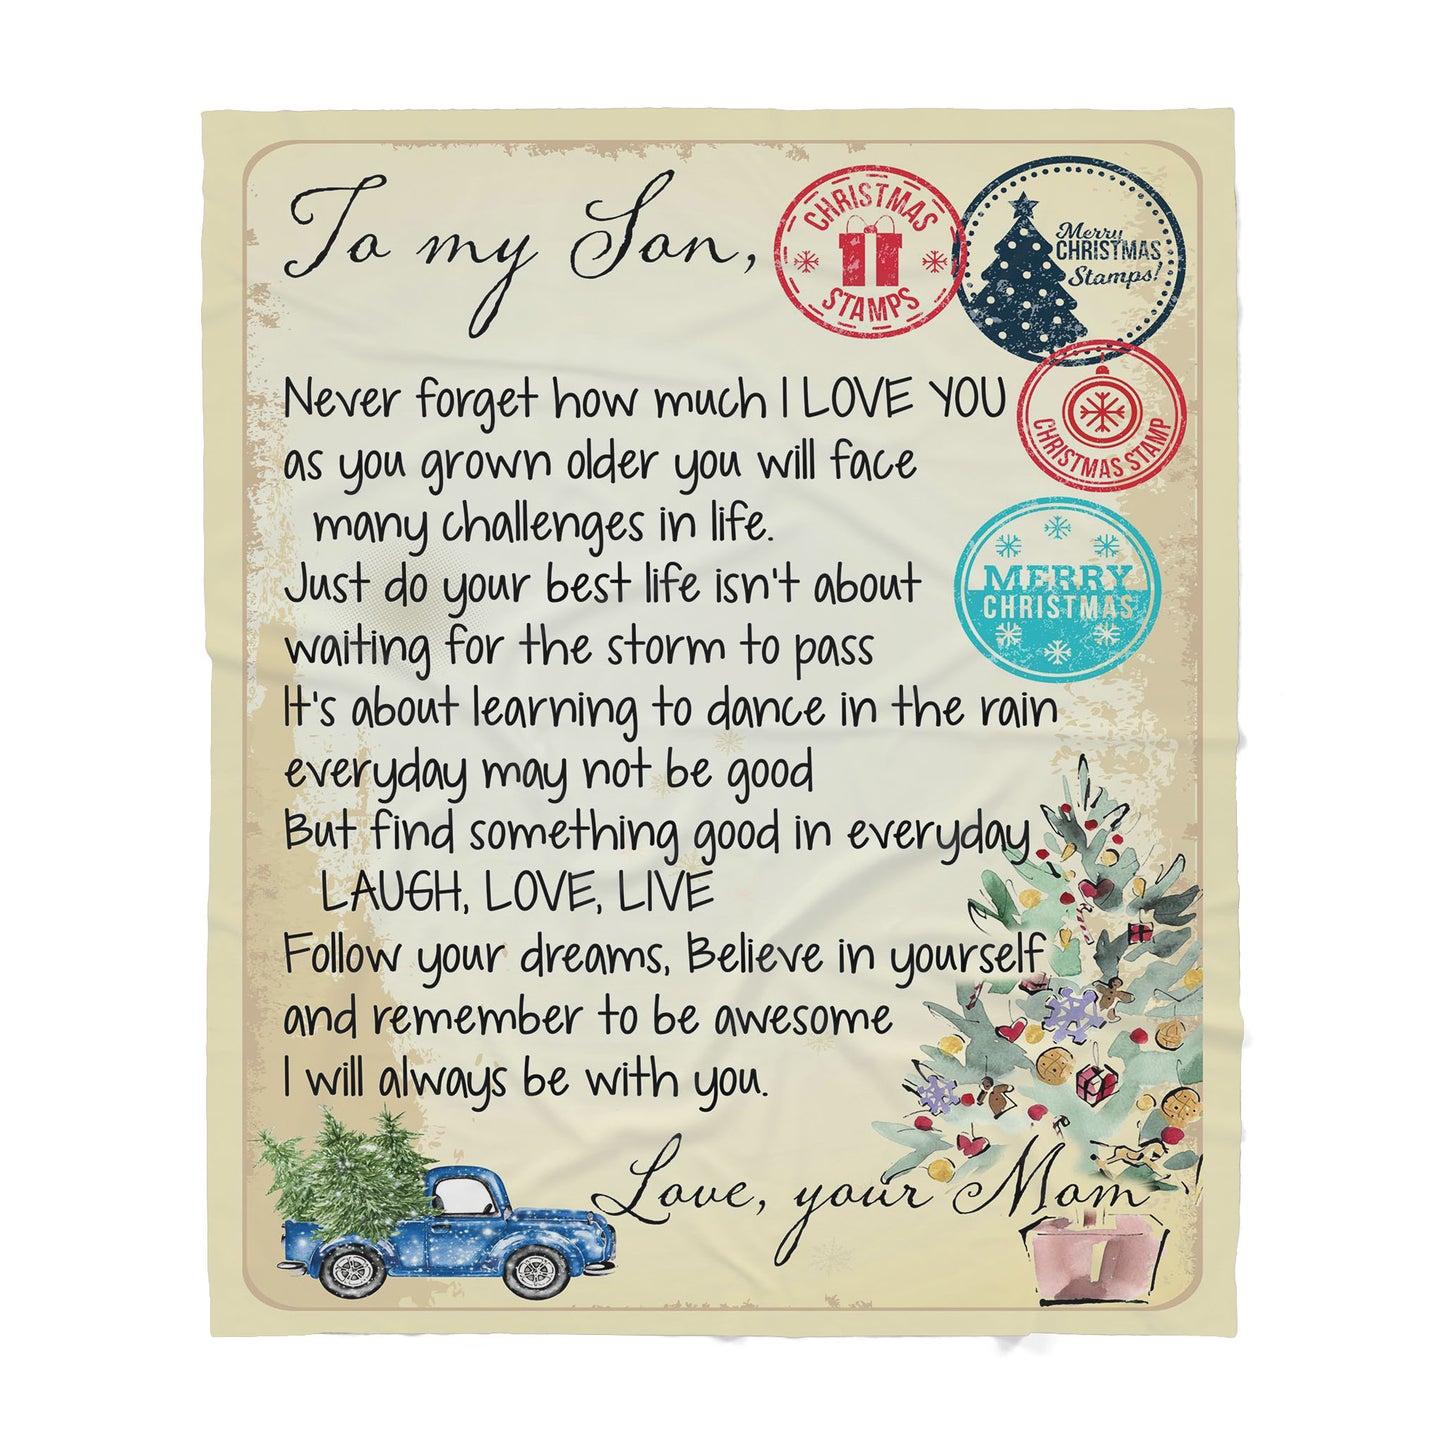 To my Son,
CHRISTMAS
STAMPS
Merry
CHRISTMAS
Stamps!
CHRISTMAS STAMP
MERRY
CHRISTMAS
Never forget how much I LOVE YOU
as you grown older you will face
many challenges in life.
Just do your best life isn't about
waiting for the storm to pass
It's about learning to dance in the rain
everyday may not be good
But find something good in everyday
LAUGH, LOVE, LIVE
Follow your dreams, Believe in yourself
and remember to be awesome
I will always be with you.
Love, your Mom